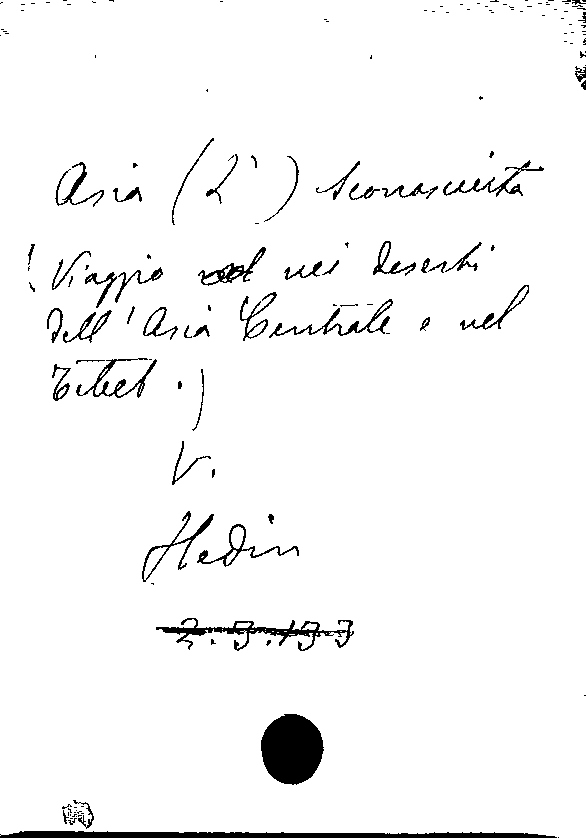 Asia (L') sconosciuta
(Viaggio nei deserti
dell'Asia Centrale e nel
Tibet.)
V.
Hedin
2.J.133